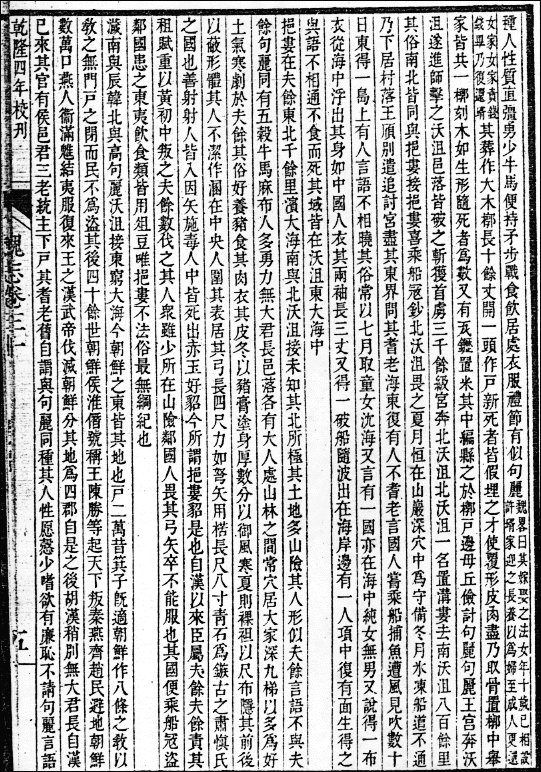 種人性質直彊勇少牛馬便持矛步戰食飲居處衣服禮節有似句麗魏畧曰其嫁娶之法女年十歲已相設許壻家迎之長養以爲婦至成人更還
女家女家責錢錢畢乃復還壻其葬作大木槨長十餘丈開一頭作戶新死者皆假埋之才使覆形皮肉盡乃取骨置槨中舉
家皆共一槨刻木如生形隨死者爲數又有瓦䥶置米其中編縣之於槨戶邊毋丘儉討句麗句麗王宮奔沃
沮遂進師擊之沃沮邑落皆破之斬獲首虜三千餘級宮奔北沃沮北沃沮一名置溝婁去南沃沮八百餘里
其俗南北皆同與挹婁接挹婁喜乘船寇鈔北沃沮畏之夏月恒在山巖深穴中爲守備冬月氷凍船道不通
乃下居村落王頎別遣追討宮盡其東界問其耆老海東復有人不耆老言國人嘗乘船捕魚遭風見吹數十
日東得一島上有人言語不相曉其俗常以七月取童女沈海又言有一國亦在海中純女無男又說得一布
衣從海中浮出其身如中國人衣其兩袖長三丈又得一破船隨波出在海岸邊有一人項中復有面生得之
與語不相通不食而死其域皆在沃沮東大海中
挹婁在夫餘東北千餘里濱大海南與北沃沮接未知其北所極其土地多山險其人形似夫餘言語不與夫
餘句麗同有五穀牛馬麻布人多勇力無大君長邑落各有大人處山林之間常穴居大家深九梯以多爲好
土氣寒劇於夫餘其俗好養豬食其肉衣其皮冬以豬膏塗身厚數分以御風寒夏則裸袒以尺布隱其前後
以蔽形體其人不潔作溷在中央人圍其表居其弓長四尺力如弩矢用楛長尺八寸青石爲鏃古之肅慎氏
之國也善射射人皆入因矢施毒人中皆死出赤玉好貂今所謂挹婁貂是也自漢以來臣屬夫餘夫餘責其
租賦重以黃初中叛之夫餘數伐之其人衆雖少所在山險鄰國人畏其弓矢卒不能服也其國便乘船寇盜
鄰國患之東夷飲食類皆用俎豆唯挹婁不法俗最無綱紀也
濊南與辰韓北與高句麗沃沮接東窮大海今朝鮮之東皆其地也戶二萬昔箕子旣適朝鮮作八條之敎以
敎之無門戶之閉而民不爲盜其後四十餘世朝鮮侯淮僭號稱王陳勝等起天下叛秦燕齊趙民避地朝鮮
數萬口燕人衞滿魋結夷服復來王之漢武帝伐滅朝鮮分其地爲四郡自是之後胡漢稍別無大君長自漢
已來其官有侯邑君三老統主下戶其耆老舊自謂與句麗同種其人性愿慤少嗜欲有廉恥不請句麗言語
乾隆四年校刊
魏志卷三十